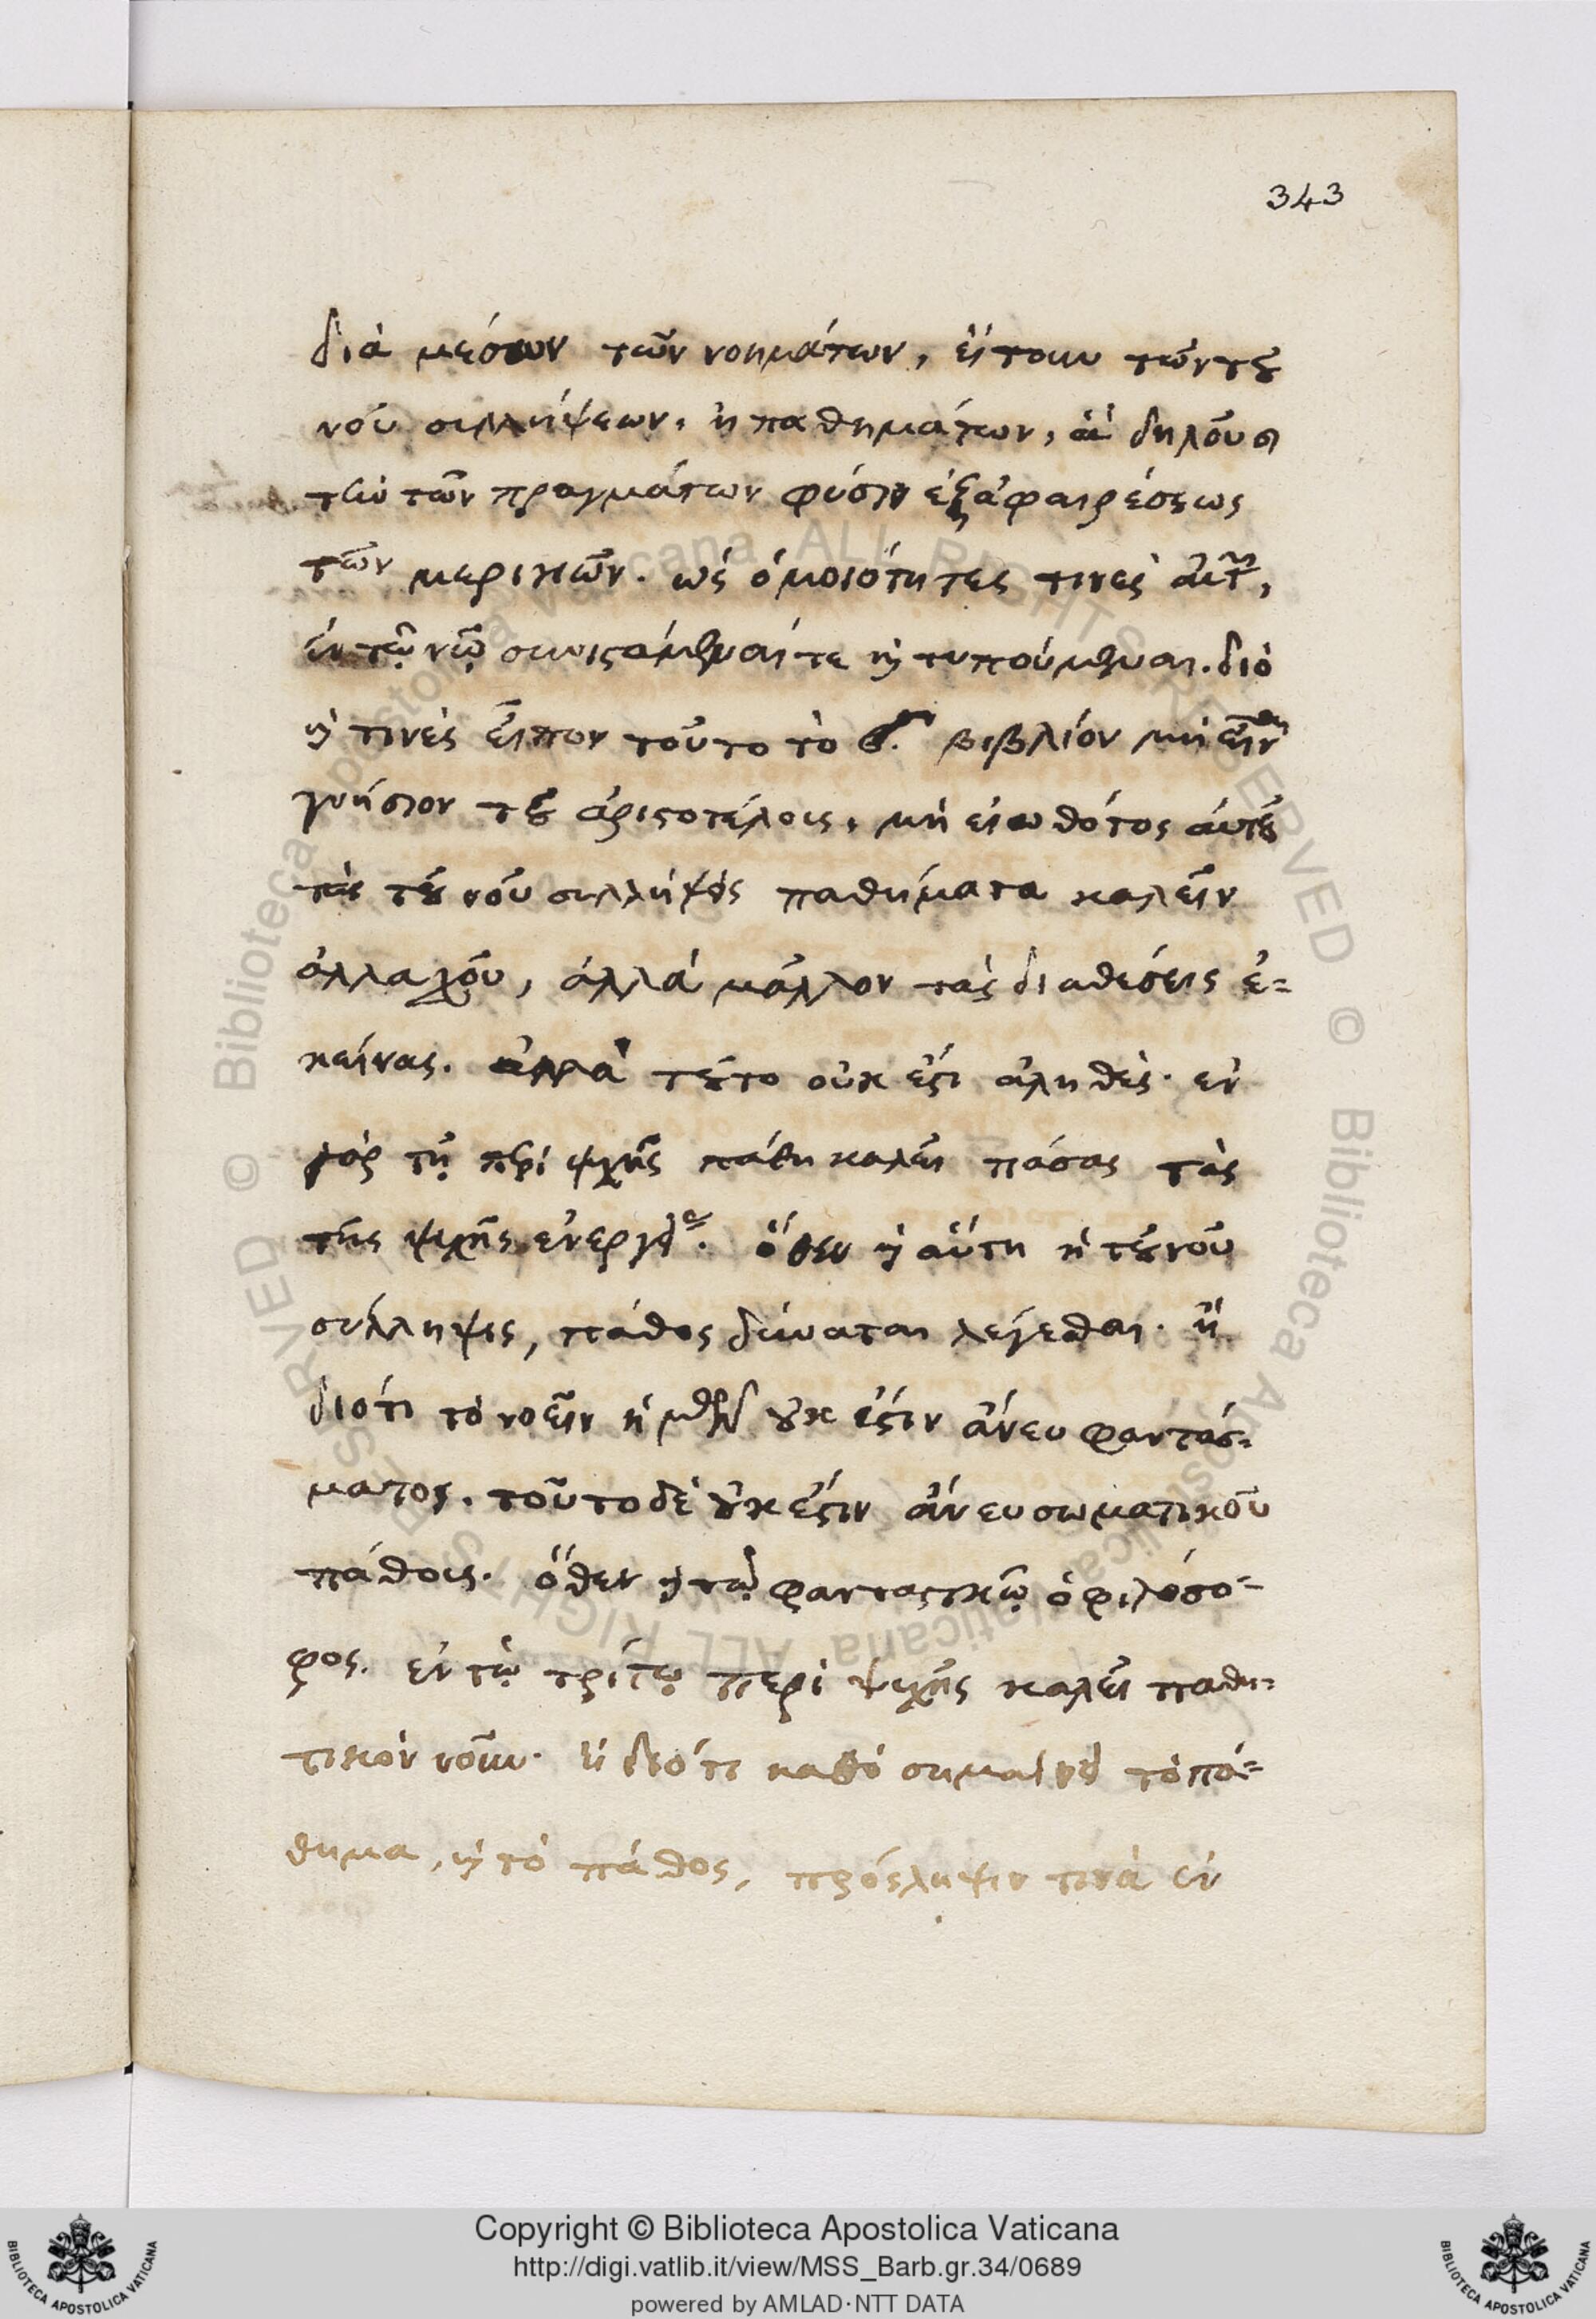 343
διὰ μέσων τῶν νοημάτων, εἴτουν τῶν τοῦ
νοῦ συλλήψεων, ἢ παθημάτων, ἃ δηλοῦσι
τὴν τῶν πραγμάτων φύσιν ἐξ ἀφαιρέσεως
τῶν μερικῶν. ὡς ὁμοιότητες τινὲς αὐτῶν,
ἐν τῷ νῷ συνιστάμεναί τε καὶ τυπούμεναι. διὸ
καὶ τινὲς εἶπον τοῦτο τὸ βιβλίον μὴ εἶναι
γνήσιον τοῦ ἀριστοτέλους, μὴ εἰωθότος αὐτοῦ
τὰς τοῦ νοῦ συλλήψεις παθήματα καλεῖν
ἀλλαχοῦ, ἀλλὰ μᾶλλον τὰς διαθέσεις ἐ=
κείνας. ἀλλὰ τοῦτο οὐκ ἔστι ἀληθὲς. ἐν
γὰρ τῇ περὶ ψυχῆς πάθη καλεῖ πάσας τὰς
τῆς ψυχῆς ἐνεργείας. ὅθεν καὶ αὕτη ἡ τοῦ νοῦ
σύλληψις, πάθος δύναται λέγεσθαι. ἢ
διότι τὸ νοεῖν ἡμῶν οὐκ ἔστιν ἄνευ φαντάσ=
ματος. τοῦτο δὲ οὐκ ἔστιν ἄνευ σωματικοῦ
πάθους. ὅθεν καὶ τῷ φανταστικῷ ὁ φιλόσο=
φος. ἐν τῷ τρίτῳ περὶ ψυχῆς καλεῖ παθη=
τικὸν νοῦν. ἢ διότι καθὸ σημαίνει τὸ πά=
θημα, καὶ τὸ πάθος, πρόσληψιν τινὰ ἐν
Copyright © Biblioteca Apostolica Vaticana
http://digi.vatlib.it/view/MSS_Barb.gr.34/0689
powered by AMLAD·NTT DATA